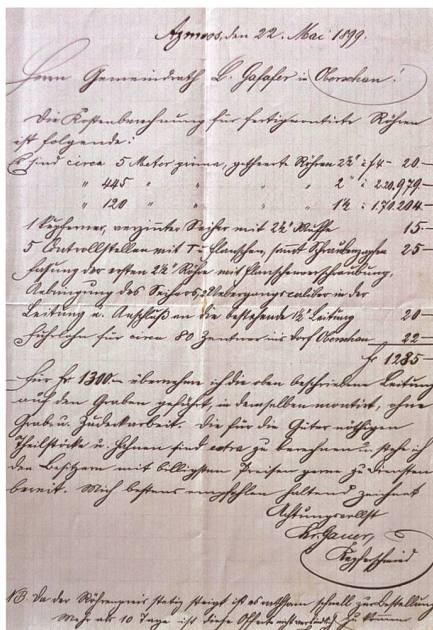 Azmoos, den 22. Mai 1899.
Herrn Gemeindrath L. Gafafer in Oberschan!
Die Kostenberechnung für fertig montirte Röhren
ist folgende:
Es sind circa 5 Meter prima, getheerte Röhren 2½" à f 4- 20–
" 445 " " " " 2" à 2.20, 979–
" 120 " " " " 1½ à 1.70. 204–
1 Kupferner, verzinnter Seiher mit 2½" Muffe 15–
5 Controllstellen mit T u. Flanschen, sammt Schrauben 25–
Faßung der ersten 2½" Röhre mit Flanschenverschraubung,
des Seihers, Uebergangscaliber in der
Leitung u. Anschluß an die bestehende 1½" Leitung 20–
Fuhrlohn für circa 80 Zentner ins Dorf Oberschan 22–
fr 1285
Für fr 1300.– übernehme ich die oben beschriebene Leitung
auf den Graben geführt, in demselben montirt, ohne
Grab u. Zudeckarbeit. Die für die Güter nöthigen
Theilstöcke u. Hahnen sind extra zu berechnen u. stehe ich
den Besitzern mit billigsten Preisen gerne zu Diensten
bereit. Mich bestens empfohlen haltend zeichnet
Achtungsvollst
Kupferschmied
NB Da der Röhrenpreis stetig steigt ist es rathsam schnell zur Bestellung
Mehr als 10 Tage ist diese Offerte zu kommen